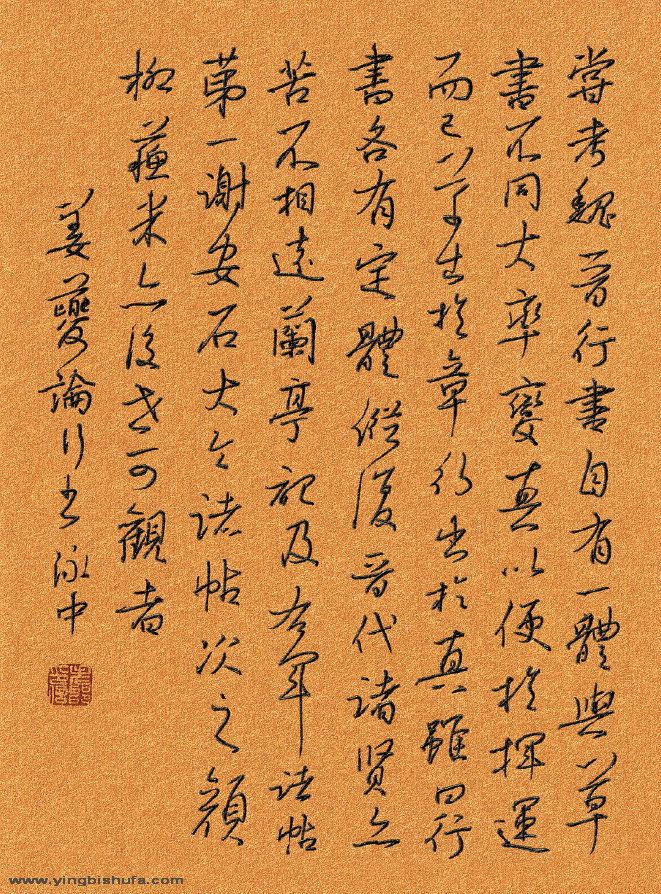 嘗考魏晉行書自有一體與草
書不同大率變真以便於揮運
而已草出於章行出於真雖曰行
書各有定體縱復晉代諸賢亦
苦不相遠蘭亭記及右軍諸帖
第一謝安石大令諸帖次之顏
柳蘇米亦後世可觀者
姜夔論行書 泳中
www.yingbishufa.com